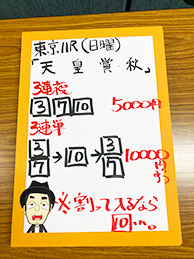 東京11R(日曜)
「天皇賞・秋」
3連複
3 7 10 5000円
3連単
3/7→10→3/7 10000円ずつ
※割って入るなら
10…。